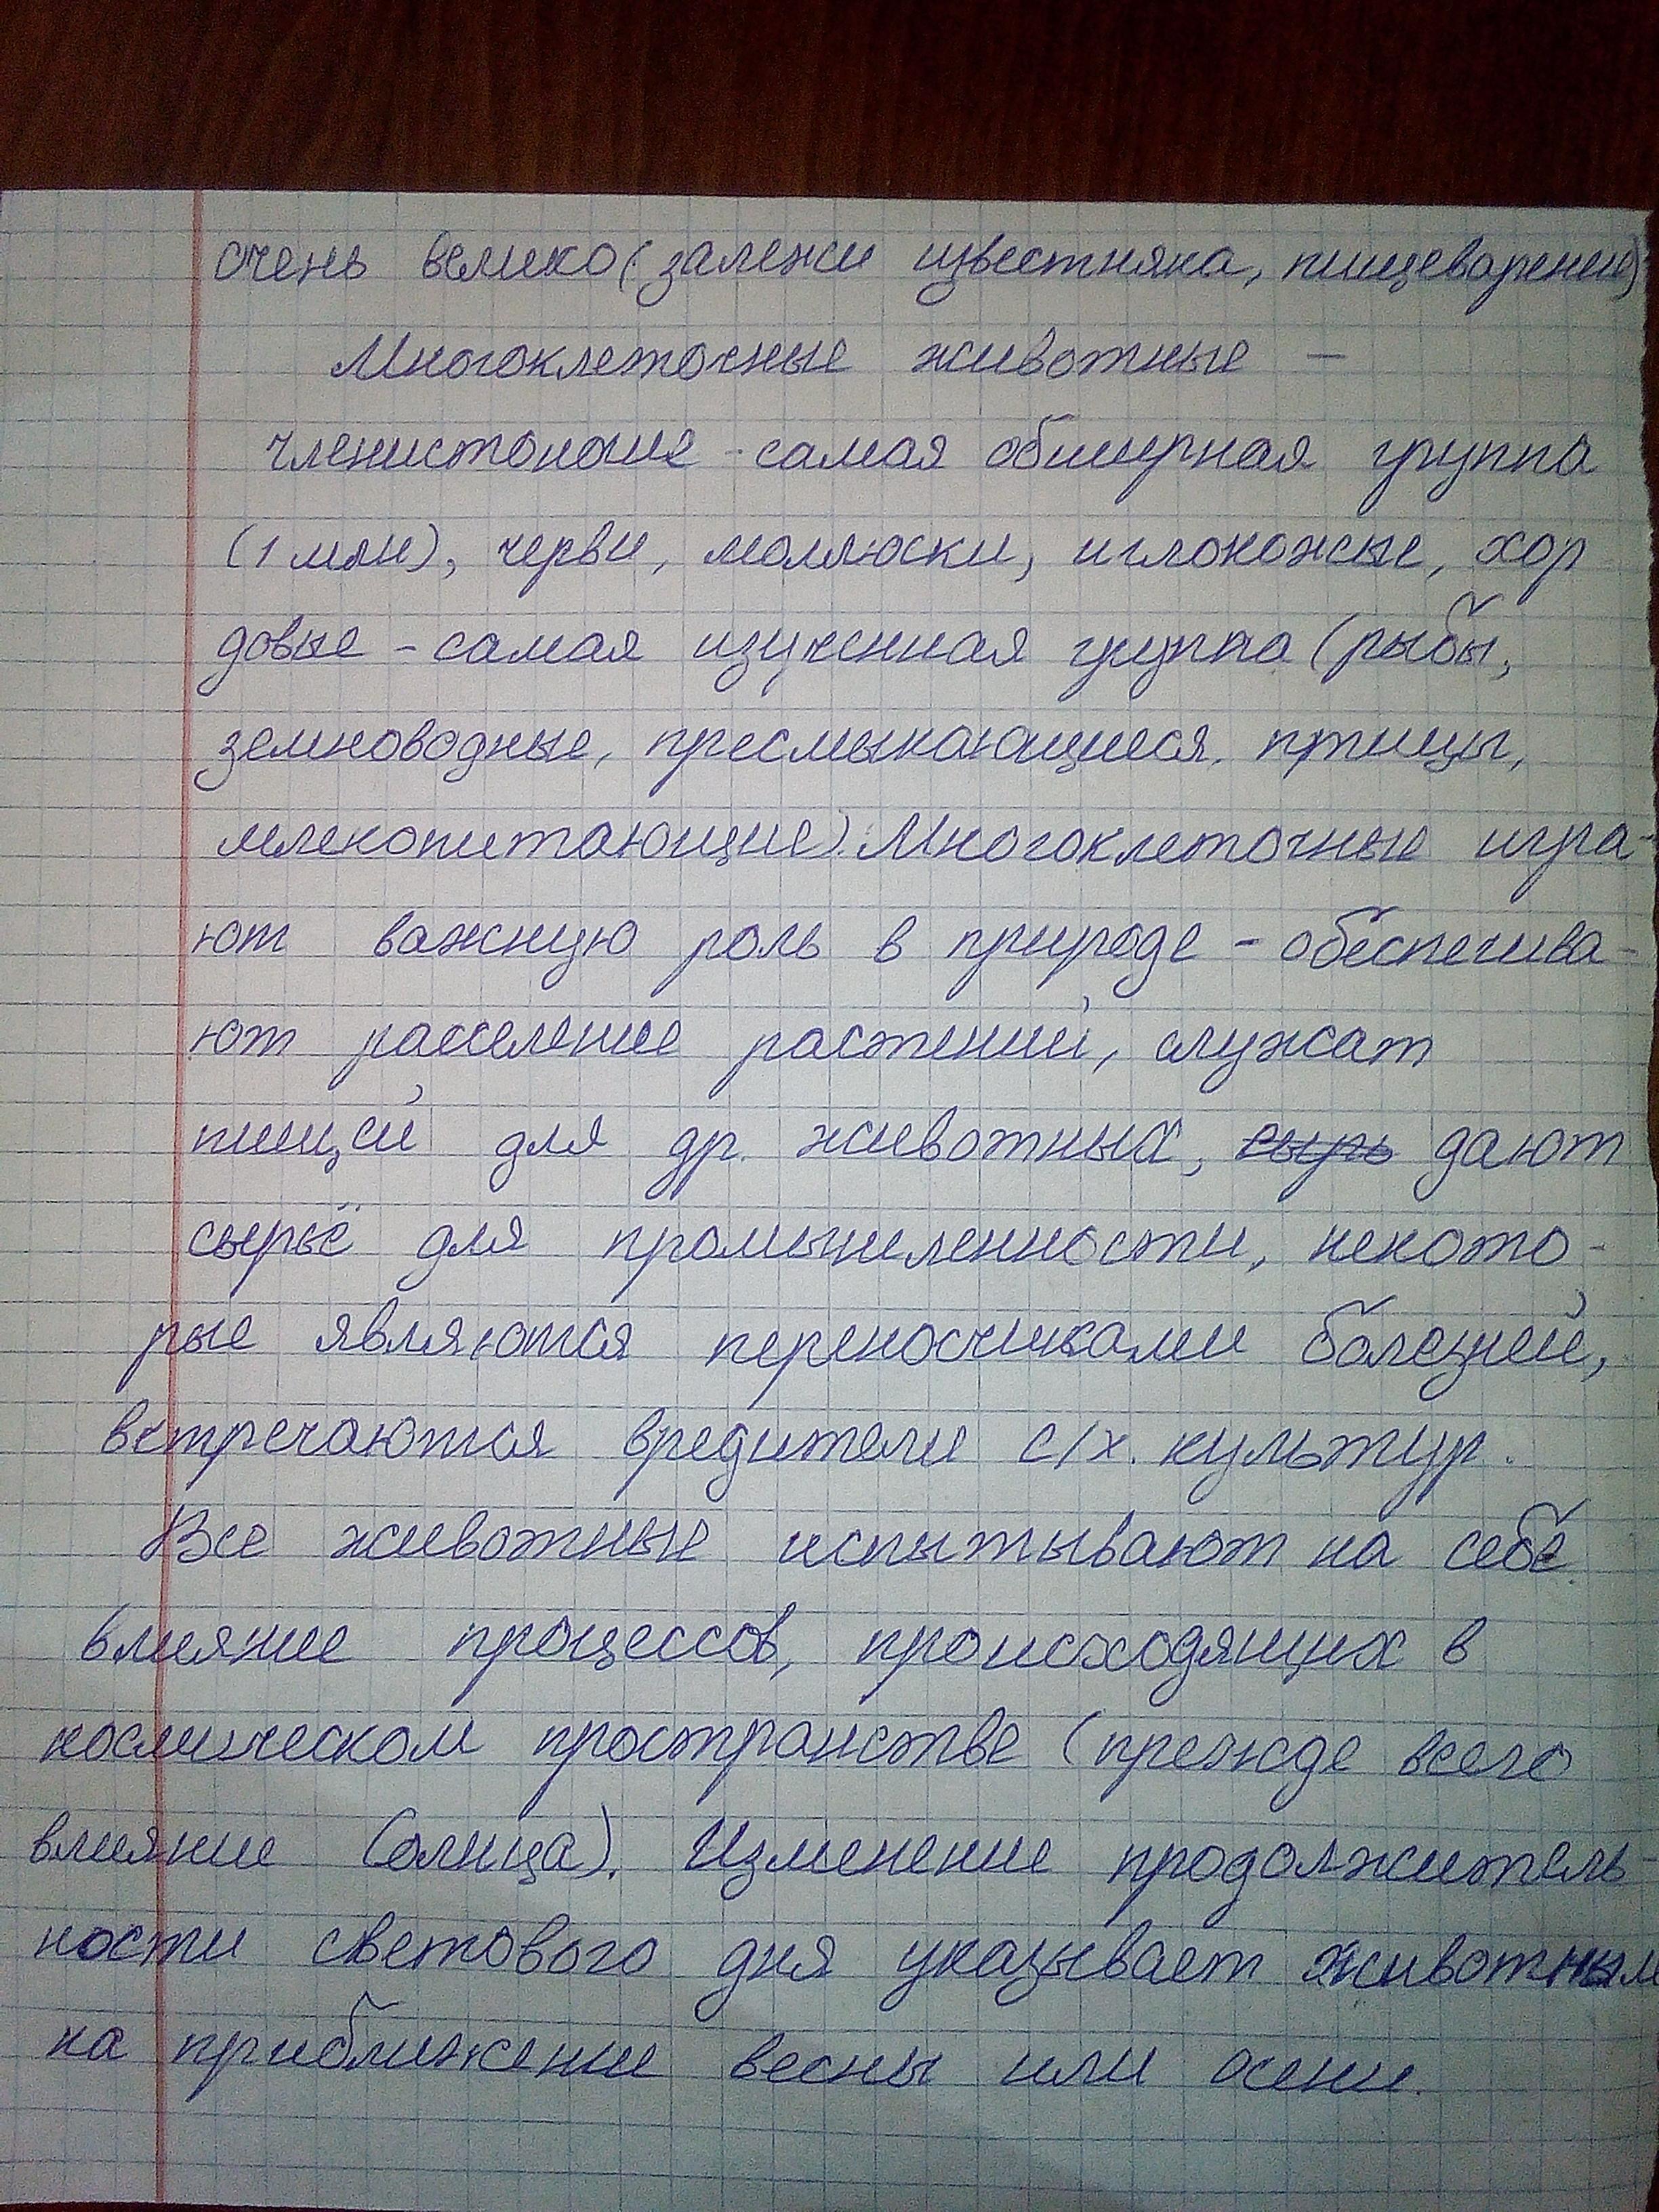 очень велико (залежи известняка, пищеварение)
Многоклеточные животные —
членистоногие - самая обширная группа
(1 млн), черви, моллюски, иглокожие, хор
довые - самая изученная группа (рыбы,
земноводные, пресмыкающиеся, птицы,
млекопитающие). Многоклеточные игра-
ют важную роль в природе - обеспечива-
ют расселение растений, служат
пищей для др. животных, сырь дают
сырьё для промышленности, некото-
рые являются переносчиками болезней,
встречаются вредители с/х. культур.
Все животные испытывают на себе
влияние процессов, происходящих в
космическом пространстве (прежде всего
влияние Солнца). Изменение продолжитель-
ности светового дня указывает животным
на приближение весны или осени.